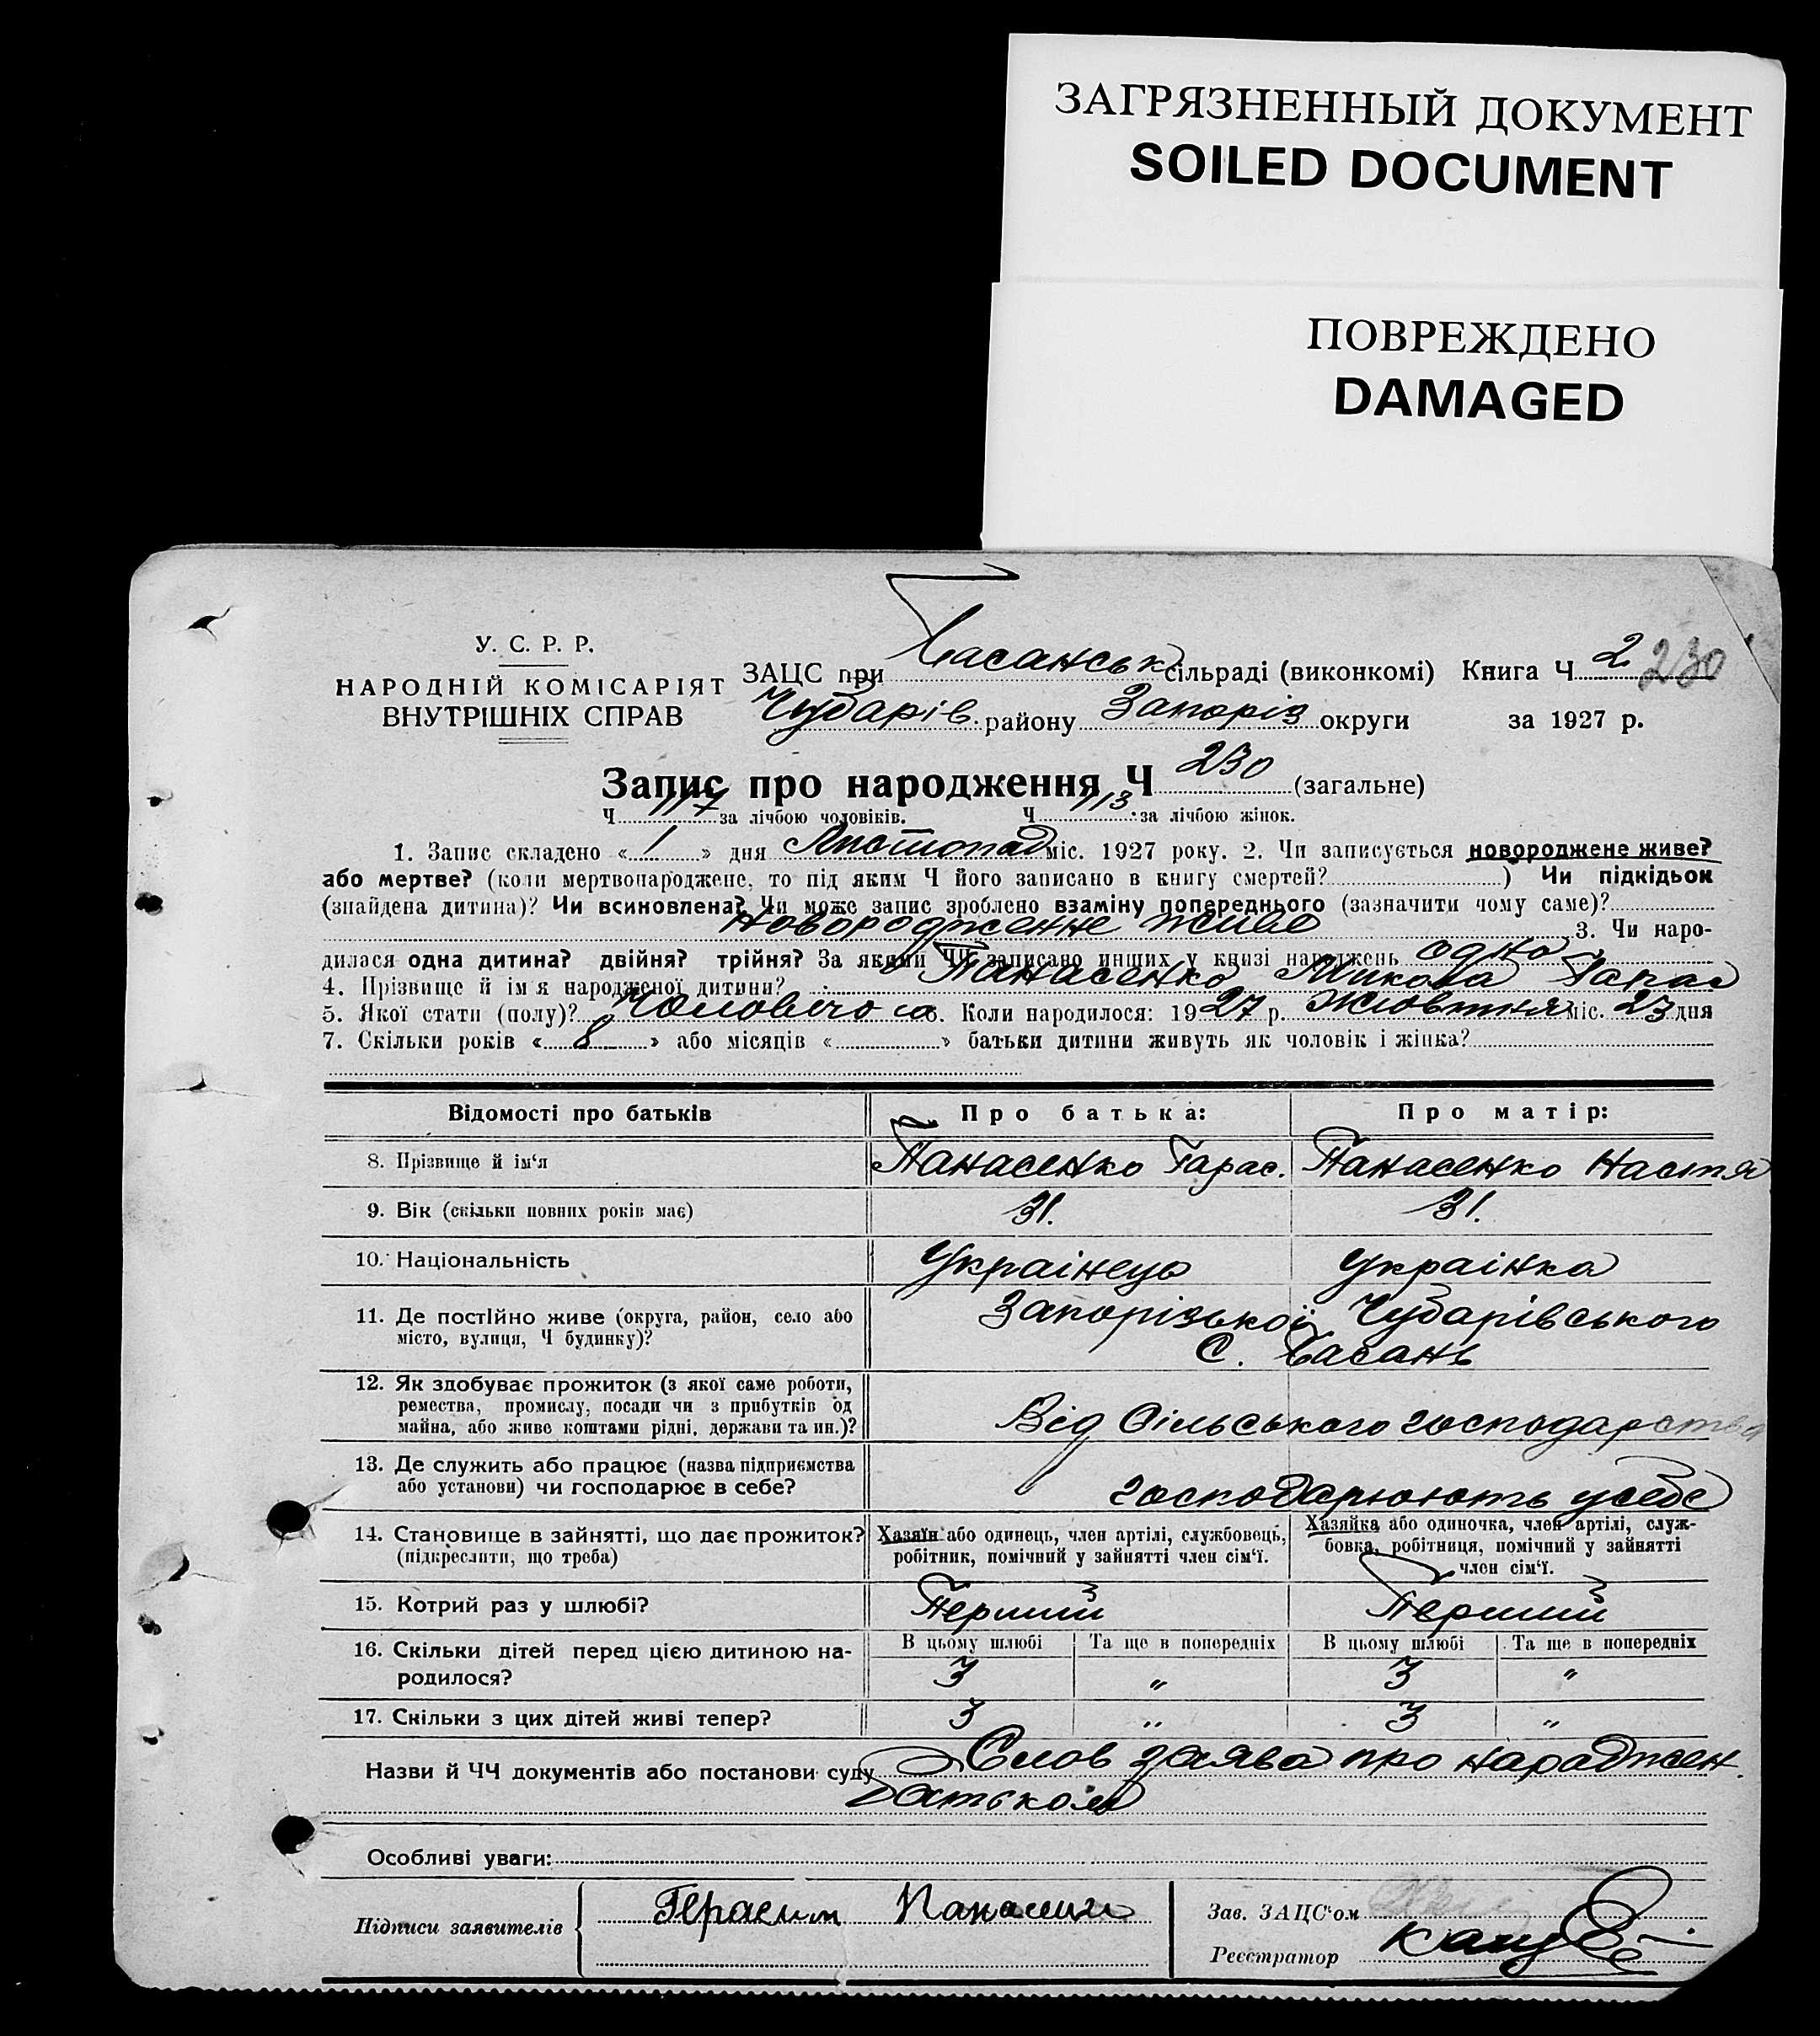 ЗАГРЯЗНЕННЫЙ ДОКУМЕНТ
SOILED DOCUMENT
ПОВРЕЖДЕНО
DAMAGED
У. С. Р. Р.
НАРОДНІЙ КОМІСАРІЯТ
ВНУТРІШНІХ СПРАВ
ЗАЦС при Басанськ сільраді (виконкомі) Книга Ч 2 230
Чубарів. району Запоріз округи за 1927 р.
Запис про народження Ч 230 (загальне)
Ч 117 за лічбою чоловіків. Ч 113 за лічбою жінок.
1. Запис складено « 1 » дня Листопад міс. 1927 року. 2. Чи записується новороджене живе?
або мертве? (коли мертвонароджене, то під яким Ч його записано в книгу смертей? ) Чи підкідьок
(знайдена дитина)? Чи всиновлена? Чи може запис зроблено взаміну попереднього (зазначити чому саме)?
новородженне живе 3. Чи наро-
дилася одна дитина? двійня? трійня? За якими ЧЧ записано инших у книзі народжень одно
4. Прізвище й ім'я народженої дитини? Панасенко Микола Тарас
5. Якої стати (полу)? Чоловічого 6. Коли народилося: 1927 р. Жовтня міс. 23 дня
7. Скільки років « 8 » або місяців « » батьки дитини живуть як чоловік і жінка?
Відомості про батьків Про батька: Про матір:
8. Прізвище й ім'я Панасенко Тарас. Панасенко Настя
9. Вік (скільки повних років має) 31. 31.
10. Національність Українець Українка
11. Де постійно живе (округа, район, село або Запорізької Чубарівського
місто, вулиця, Ч будинку)? С. Басань
12. Як здобуває прожиток (з якої саме роботи,
ремества, промислу, посади чи з прибутків од
майна, або живе коштами рідні, держави та ин.)? Від Сільського господарства
13. Де служить або працює (назва підприємства
або установи) чи господарює в себе? господарюють усебе
14. Становище в зайнятті, що дає прожиток? Хазяїн або одинець, член артілі, службовець, Хазяйка або одиночка, член артілі, служ-
(підкреслити, що треба) робітник, помічний у зайнятті член сім'ї. бовка, робітниця, помічний у зайнятті
член сім'ї.
15. Котрий раз у шлюбі? Перший Перший
16. Скільки дітей перед цією дитиною на- В цьому шлюбі Та ще в попередніх В цьому шлюбі Та ще в попередніх
родилося? 3 " 3 "
17. Скільки з цих дітей живі тепер? 3 " 3 "
Назви й ЧЧ документів або постанови суду Слов заява про нараджен.
батьком
Особливі уваги:
Підписи заявителів
Зав. ЗАЦС'ом
Реєстратор